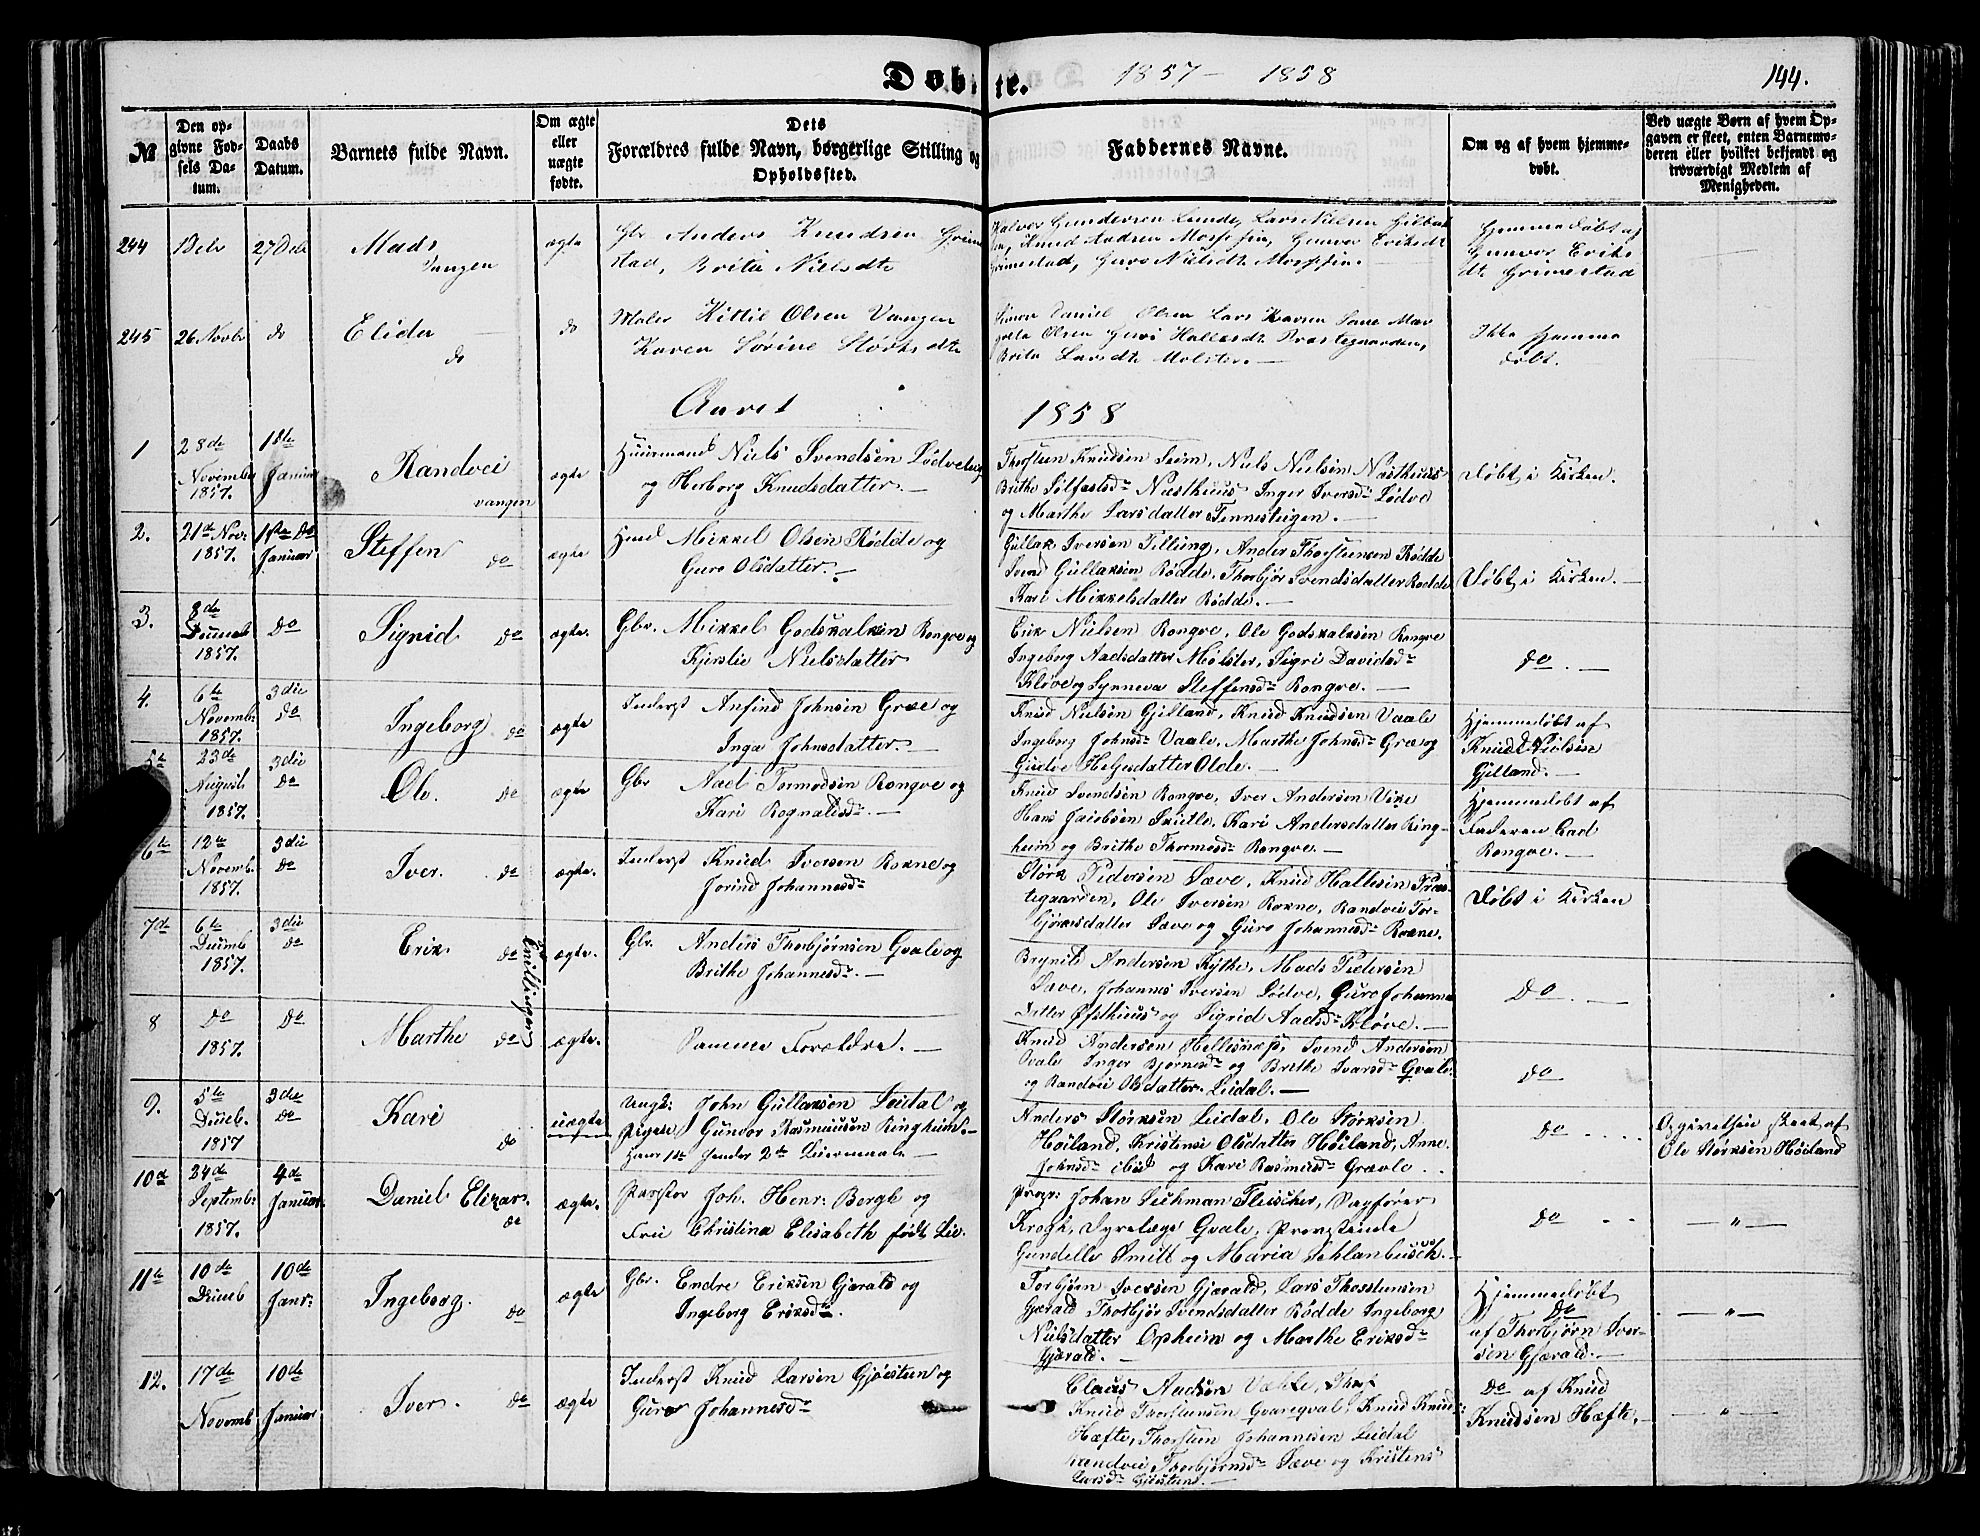 Døbte. 1857 - 1858
144.
№
Den opgivne Fødsels Datum.
Daabs Datum.
Barnets fulde Navn.
Om ægte eller uægte fødte.
Dets Forældres fulde Navn, borgerlige Stilling og Opholdssted.
Faddernes Navne.
Om og af hvem hjemmedøbt.
Ved uægte Børn af hvem Opgaven er skeet, enten Barnemoderen eller hvilket bekjendt og troværdigt Medlem af Menigheden.
244 1 Debr 27 Deb Mads Vangen ægte
Gbr Anders Knudsen Grimestad, Brita Nielsdtr
Halvor Gundersen Lunde, Lars Nilsen
Knud Andrsen, Gunvor Eriksdt
Grimestad, Guro Nielsdt
Hjemmedøbt af
Gunvor Eriksdt. Grimestad
245 26 Novbr do Elida do do
Maler Kittil Olsen Vangen
Karen Sørine Størksdtr
Daniel Olsen Lars Larsen
Olsen Guri Hallesdt Prestegaarden,
Brita Larsdt Molster.
Ikke hjemmedøbt.
Aaret 1858
1 28de November 1857. 1ste Januar Randvei vangen ægte
Huusmand Niels Svendsen Lødve
og Herborg Knudsdatter.
Thorsteen Knudsen Seim, Niels Nielsen Næsthuus
Brithe Sølfæstsdr Næsthuus Inger Iversdr Lødve
og Marthe Larsdatter Tennesteigen.
Døbt i Kirken.
2. 21de Nov: 1857. 1ste Do Januar Steffen do ægte
Huusd Mikkel Olsen Rødde og
Guro Olsdatter.
Gullak Iversen Tillung, Anders Thorsteensen Rødde
Svend Gullaksen Rødde, Thorbjør Svendsdatter Rødde
Kari Mikkelsdatter Rødde.
Døbt i Kirken.
3. 8de Decemb 1857. do Sigrid do ægte.
Gbr. Mikkel Godskalksen Rongve og
Kjerstie Nielsdatter
Erik Nielsen Rongve, Ole Godskalksen Rongve
Ingeborg Aadsdatter Mølster, Sigri Davidsdr
Kløve og Synneva Steffensdr Rongve.
do.
4. 6te Novemb: 1857. 3die do Ingeborg do ægte
Inderst Anfind Johnsen Græe og
Inga Johnsdatter.
Knud Nielsen Gjelland, Knud Knudsen Vaale
Ingeborg Johnsdr Vaale, Marthe Johnsdr Græ og
Gudve Helgesdatter Olde.
Hjemmedøbt af
Knud Nielsen
Gjelland.
5te 23de August 1857. 3die do Ole. do ægte
Gbr Aad Tormodsen Rongve og
Kari Rognaldsdr.
Knud Svendsen Rongve, Iver Andersen Vike
Hans Jacobsen Skutle, Kari Andersdatter Ringheim og Brithe Thormodsdr Rongve.
Hjemmedøbt af
Faderen Aad
Rongve.
6te 12te Novemb. 1857. 3die do Iver. do ægte.
Inderst Knud Iversen Rokne og
Jorind Johannesdr
Størk Pedersen Sæve, Knud Hallesen Præstegaarden, Ole Iversen Rokne, Randvei Torbjørnsdatter Sæve og Guro Johannesdr Rokne.
Døbt i Kirken
7de 6te Decemb 1857. 3die do Erik do Tvillinger ægte.
Gbr. Anders Thorbjørnsen Gvale og
Brithe Johannesdr.
Brynild Andersen Kythe, Mads Pedersen
Sæve, Johannes Iversen Lødve, Guro Johannes
Datter Østhuus og Sigrid Aadsdr Kløve.
do.
8 do 1857. do Marthe do ægte.
Samme Forældre.
Knud Andersen Hellesnæs, Svend Andersen
Gvale Inger Bjørnsdr og Brithe Ivarsdr Gvale
og Randvei Olsdatter Leidal.
do
9. 5te Deceb. 1857 3die do Kari do uægte
Ungk: John Gullaksen Leidal og
Pigen Gunvor Rasmusen Ringheim.
Hans 1ste Hendes 2de Leiermaale
Anders Størksen Leidal, Ole Størksen
Høiland, Kristense Olsdatter Høiland, Anne
Johnsdr ibid og Kari Rasmusdr Græole.
do
Opgivelsen skeet af
Ole Størksen Høiland
10de 24de Septemb: 1857. 4de Januar Daniel Elizar. do ægte.
Pastor Joh. Henr: Bergh og
Frue Christina Elisabeth født Lie.
Propr: Johan Sechman Fleischer, Sagfører
Krogh, Dyrelæge Gvale, Provstinde
Gundelle Smitt og Maria Schlanbusch.
do
"
11te 10de Decemb 10de Janr: Ingeborg. do ægte
Gbr. Endre Eriksen Gjerald og
Ingeborg Eriksdr.
Torbjørn Iversen Gjerald, Lars Thorsteinsen
Gjerald Thorbjør Svendsdatter Rødde Ingeborg
Nielsdatter Opheim og Marthe Eriksdr
Gjerald.
Hjemmedøbt
do
af Thorbjørn Iversen Gjerald.
"
12. 17de Novemb 10de Januar Iver. do ægte
Inderst Knud Larsen Gjøsteen og
Guro Johannesdr
Claus Aadsen
Knud Thorsteinsen, Knud Knuds:
Hæfte, Thorsteen Johannesen Leidal
Randvei Thorbjørnsdr Sæve og Kristens
Larsdr Gjøsteens.
do af Knud
Knudsen Hæfte.
"